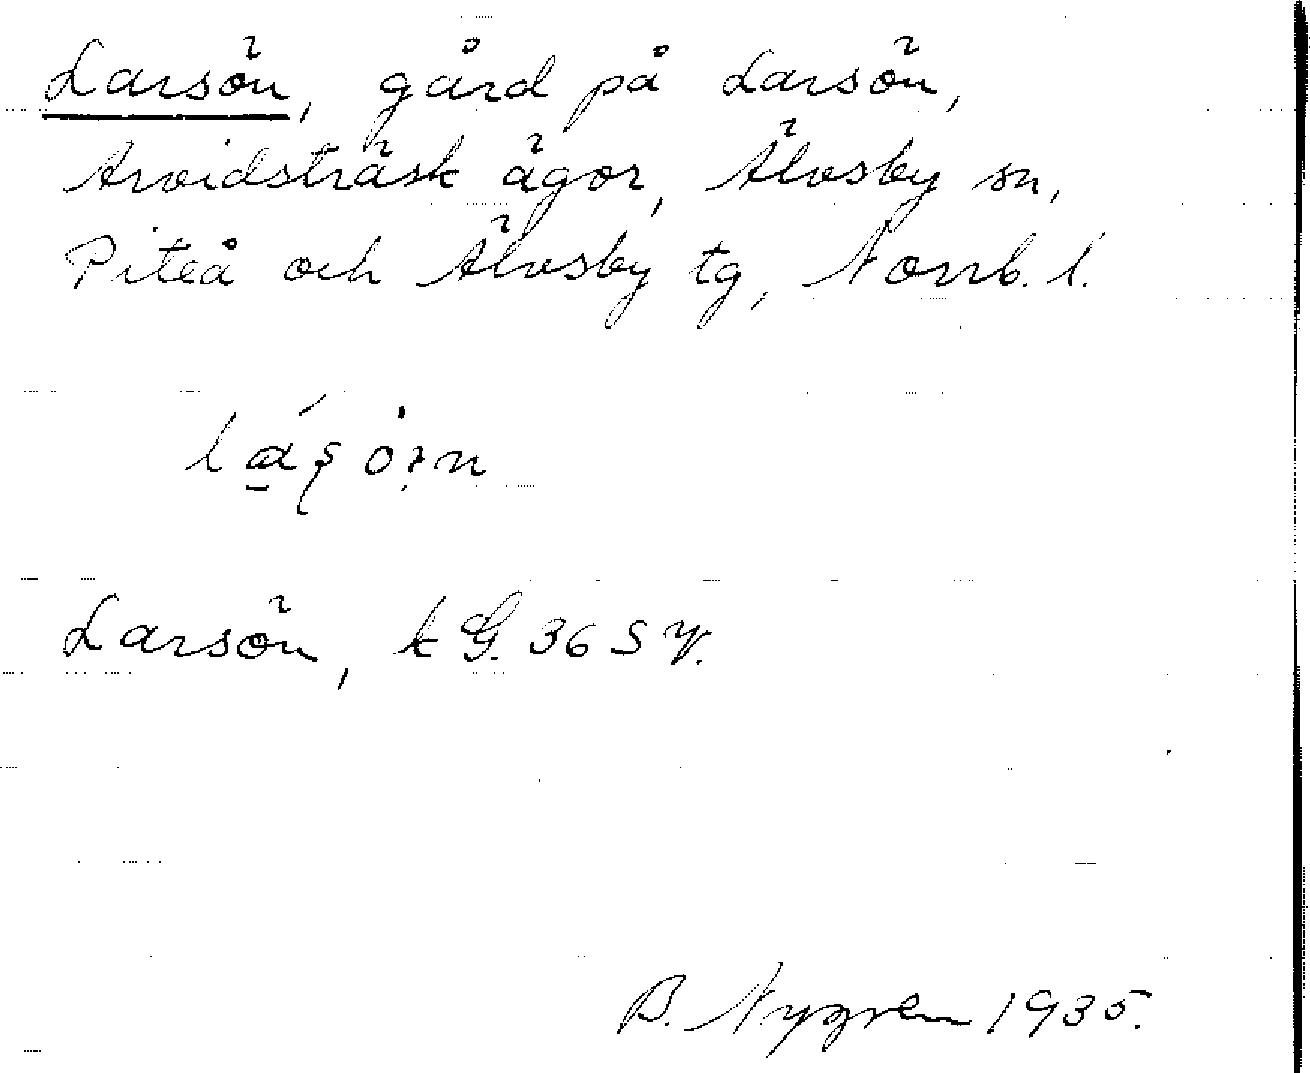 Larsön, gård på Larsön,
Arvidsträsk ägor, Älvsby sn,
Piteå och Älvsby tg, Norrb. l.
Larsön, k G. 36 S V.
B. Nygren 1935.